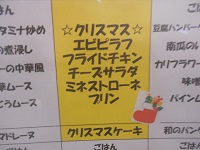 ☆クリスマス☆
エビピラフ
フライドチキン
チーズサラダ
ミネストローネ
プリン
クリスマスケーキ
ごはん
タミナ炒め
の煮浸し
ーの中華風
華ムース
とうムース
マドレーヌ
ごはん
ごは
豆腐ハンバー
南瓜の
カリフラワー
味噌
パインム
和のパン
ごは